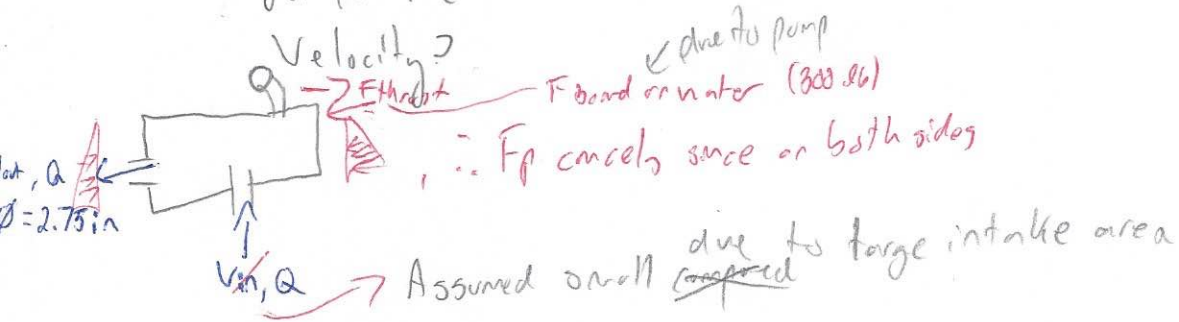 Velocity?
due to pump
Fthrust
F board on water (300 lb)
∴ Fp cancels since on both sides
out, Q
Ø=2.75in
Vin, Q
Assumed small due to large intake area